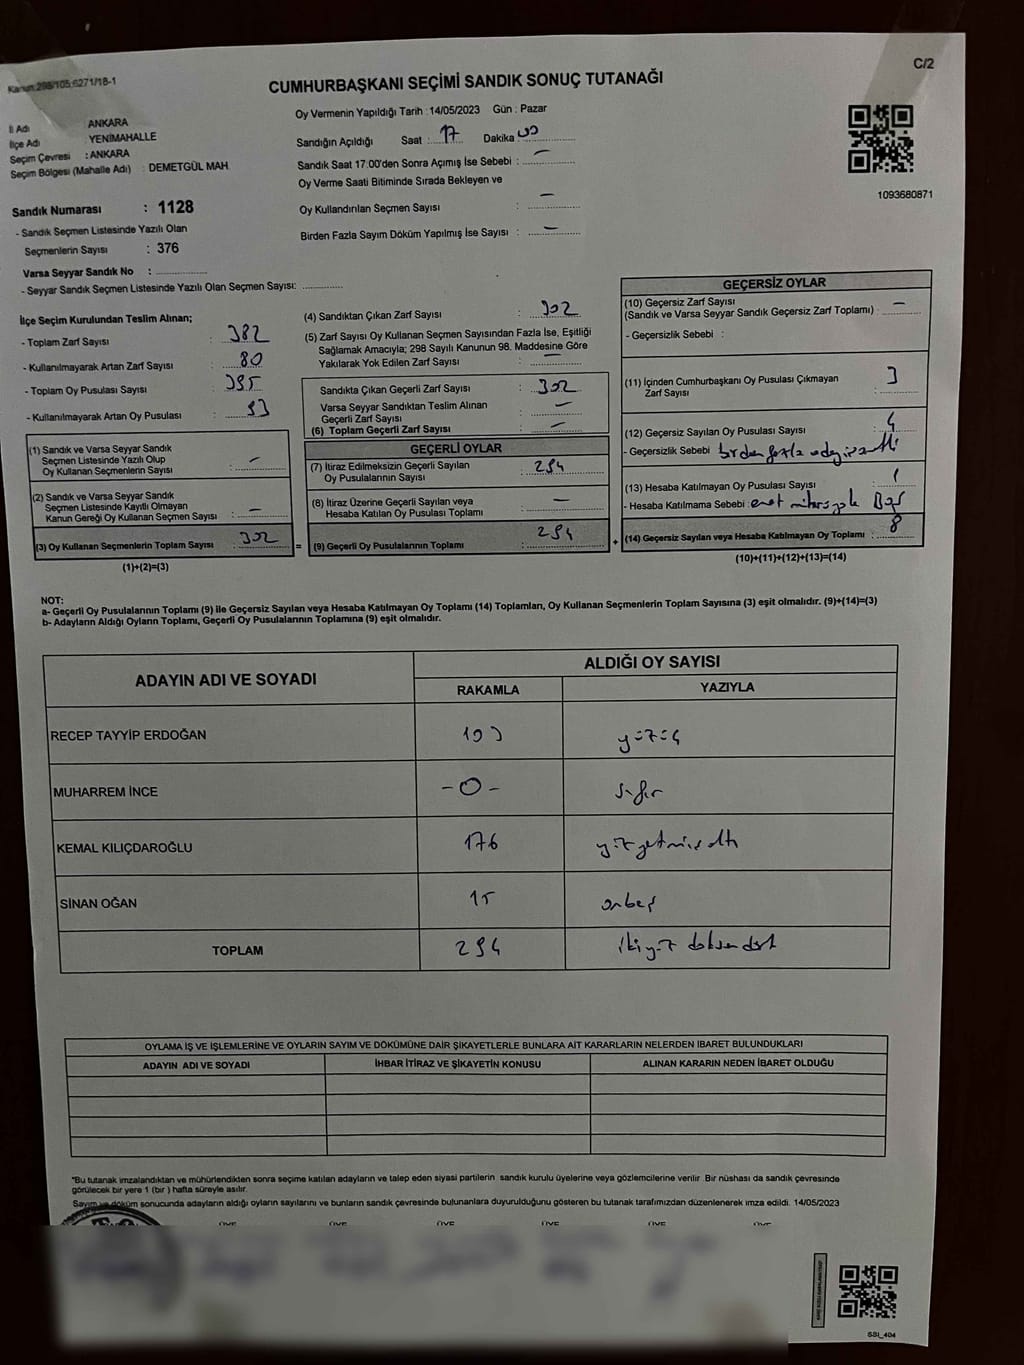 Kanun:298/105;6271/18-1
C/2
CUMHURBAŞKANI SEÇİMİ SANDIK SONUÇ TUTANAĞI
Oy Vermenin Yapıldığı Tarih : 14/05/2023 Gün : Pazar
İl Adı ANKARA
İlçe Adı YENİMAHALLE
Seçim Çevresi : ANKARA
Seçim Bölgesi (Mahalle Adı) : DEMETGÜL MAH.
Sandığın Açıldığı Saat : 17 Dakika
Sandık Saat 17:00'den Sonra Açımış İse Sebebi : -
Oy Verme Saati Bitiminde Sırada Bekleyen ve
Oy Kullandırılan Seçmen Sayısı : -
Birden Fazla Sayım Döküm Yapılmış İse Sayısı : -
1093680871
Sandık Numarası : 1128
- Sandık Seçmen Listesinde Yazılı Olan
Seçmenlerin Sayısı : 376
Varsa Seyyar Sandık No :
- Seyyar Sandık Seçmen Listesinde Yazılı Olan Seçmen Sayısı:
İlçe Seçim Kurulundan Teslim Alınan;
- Toplam Zarf Sayısı : 382
- Kullanılmayarak Artan Zarf Sayısı : 80
- Toplam Oy Pusulası Sayısı : 395
- Kullanılmayarak Artan Oy Pusulası : 93
(1) Sandık ve Varsa Seyyar Sandık
Seçmen Listesinde Yazılı Olup
Oy Kullanan Seçmenlerin Sayısı : -
(2) Sandık ve Varsa Seyyar Sandık
Seçmen Listesinde Kayıtlı Olmayan
Kanun Gereği Oy Kullanan Seçmen Sayısı : -
(3) Oy Kullanan Seçmenlerin Toplam Sayısı : 302
(1)+(2)=(3)
(4) Sandıktan Çıkan Zarf Sayısı : 302
(5) Zarf Sayısı Oy Kullanan Seçmen Sayısından Fazla İse, Eşitliği
Sağlamak Amacıyla; 298 Sayılı Kanunun 98. Maddesine Göre
Yakılarak Yok Edilen Zarf Sayısı : -
Sandıkta Çıkan Geçerli Zarf Sayısı : 302
Varsa Seyyar Sandıktan Teslim Alınan
Geçerli Zarf Sayısı : -
(6) Toplam Geçerli Zarf Sayısı : -
GEÇERLİ OYLAR
(7) İtiraz Edilmeksizin Geçerli Sayılan
Oy Pusulalarının Sayısı : 294
(8) İtiraz Üzerine Geçerli Sayılan veya
Hesaba Katılan Oy Pusulası Toplamı : -
= (9) Geçerli Oy Pusulalarının Toplamı : 294
GEÇERSİZ OYLAR
(10) Geçersiz Zarf Sayısı
(Sandık ve Varsa Seyyar Sandık Geçersiz Zarf Toplamı) : -
- Geçersizlik Sebebi :
(11) İçinden Cumhurbaşkanı Oy Pusulası Çıkmayan
Zarf Sayısı : 3
(12) Geçersiz Sayılan Oy Pusulası Sayısı : 4
- Geçersizlik Sebebi birden fazla adaya
(13) Hesaba Katılmayan Oy Pusulası Sayısı : 1
- Hesaba Katılmama Sebebi
+ (14) Geçersiz Sayılan veya Hesaba Katılmayan Oy Toplamı : 8
(10)+(11)+(12)+(13)=(14)
NOT:
a- Geçerli Oy Pusulalarının Toplamı (9) ile Geçersiz Sayılan veya Hesaba Katılmayan Oy Toplamı (14) Toplamları, Oy Kullanan Seçmenlerin Toplam Sayısına (3) eşit olmalıdır. (9)+(14)=(3)
b- Adayların Aldığı Oyların Toplamı, Geçerli Oy Pusulalarının Toplamına (9) eşit olmalıdır.
ADAYIN ADI VE SOYADI
ALDIĞI OY SAYISI
RAKAMLA YAZIYLA
RECEP TAYYİP ERDOĞAN 103 yüzüç
MUHARREM İNCE -0- sıfır
KEMAL KILIÇDAROĞLU 176 yüzyetmişaltı
SİNAN OĞAN 15 onbeş
TOPLAM 294 ikiyüz doksandört
OYLAMA İŞ VE İŞLEMLERİNE VE OYLARIN SAYIM VE DÖKÜMÜNE DAİR ŞİKAYETLERLE BUNLARA AİT KARARLARIN NELERDEN İBARET BULUNDUKLARI
ADAYIN ADI VE SOYADI İHBAR İTİRAZ VE ŞİKAYETİN KONUSU ALINAN KARARIN NEDEN İBARET OLDUĞU
"Bu tutanak imzalandıktan ve mühürlendikten sonra seçime katılan adayların ve talep eden siyasi partilerin sandık kurulu üyelerine veya gözlemcilerine verilir. Bir nüshası da sandık çevresinde
görülecek bir yere 1 (bir ) hafta süreyle asılır.
Sayım ve döküm sonucunda adayların aldığı oyların sayılarını ve bunların sandık çevresinde bulunanlara duyurulduğunu gösteren bu tutanak tarafımızdan düzenlenerek imza edildi. 14/05/2023
ÜYE ÜYE ÜYE ÜYE ÜYE ÜYE
SSİ_404